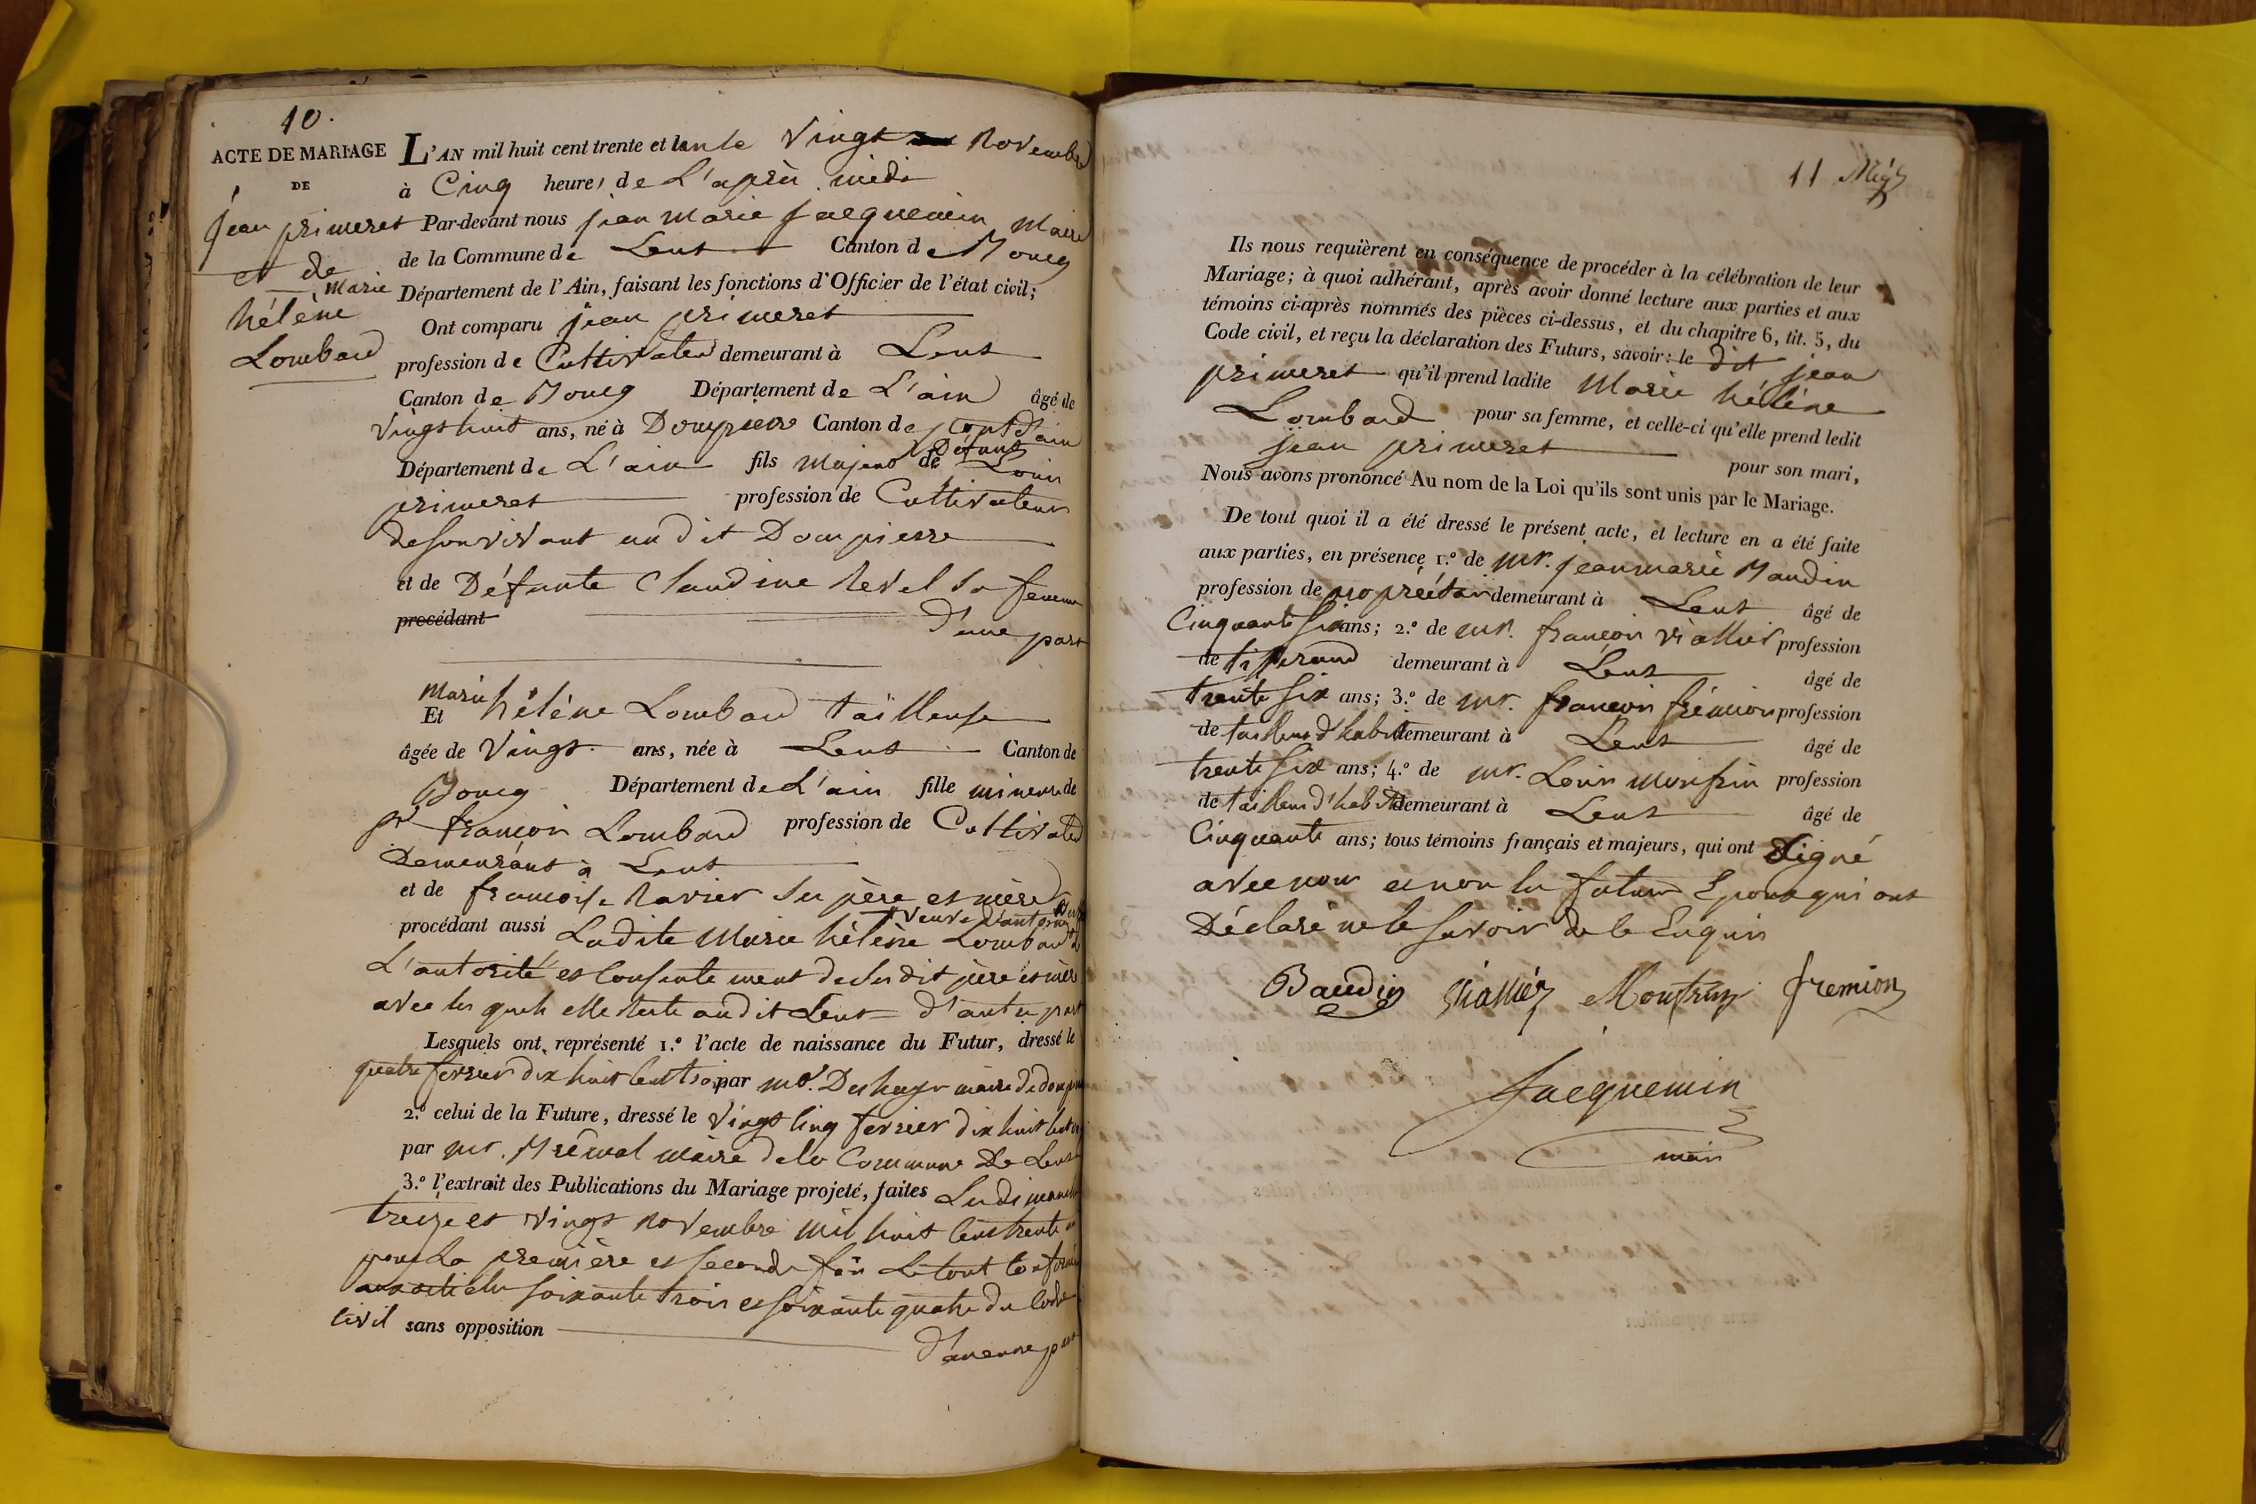 10.
ACTE DE MARIAGE
DE
jean primeret
et de
Marie
hélène
Lombard
L'AN mil huit cent trente et un le Vingt Novembre
à Cinq heures de L'après midi
Par-devant nous jean Marie Jacquemin Maire
de la Commune de Lent Canton de Bourg
Département de l'Ain, faisant les fonctions d'Officier de l'état civil;
Ont comparu jean primeret
profession de Cultivateur demeurant à Lent
Canton de Bourg Département de L'ain âgé de
Vingt huit ans, né à Dompierre Canton de pont d'ain
Département de L'ain fils majeur de Défunt Louis
primeret profession de Cultivateur
de son vivant au dit Dompierre
et de Défunte Claudine Revel sa femme
procédant d'une part
Et Marie hélène Lombard tailleuse
âgée de Vingt ans, née à Lent Canton de
Bourg Département de L'ain fille mineure de
françois Lombard profession de Cultivateur
Demeurant à Lent
et de françoise Ravier ses père et mère
procédant aussi Ladite Marie hélène Lombard de
L'autorité et Consentement de ses dit père et mère
avec les quels elle reste au dit Lent d'autre part
Lesquels ont représenté 1.º l'acte de naissance du Futur, dressé le
quatre fevrier dix huit cent trois par mr. maire de dompierre
2.º celui de la Future, dressé le Vingt Cinq fevrier dix huit cent
par mr. Brémal maire de la Commune De Lent
3.º l'extrait des Publications du Mariage projeté, faites Les dimanche
treize et Vingt Novembre mil huit Cent trente un
pour La première et seconde fois Le tout Conformé
aux article soixante trois et soixante quatre du Code
Civil sans opposition
d'aucune part
11
Ils nous requièrent en conséquence de procéder à la célébration de leur
Mariage; à quoi adhérant, après avoir donné lecture aux parties et aux
témoins ci-après nommés des pièces ci-dessus, et du chapitre 6, tit. 5, du
Code civil, et reçu la déclaration des Futurs, savoir: le dit jean
primeret qu'il prend ladite Marie hélène
Lombard pour sa femme, et celle-ci qu'elle prend ledit
jean primeret pour son mari,
Nous avons prononcé Au nom de la Loi qu'ils sont unis par le Mariage.
De tout quoi il a été dressé le présent acte, et lecture en a été faite
aux parties, en présence 1.º de mr. jean marie Baudin
profession de propriétair demeurant à Lent âgé de
Cinquante six ans; 2.º de mr. françois Viallier profession
de tisserand demeurant à Lent âgé de
trente six ans; 3.º de mr. françois frémion profession
de tailleur d'habit demeurant à Lent âgé de
trente six ans; 4.º de mr. Louis profession
de tailleur d'habit demeurant à Lent âgé de
Cinquante ans; tous témoins français et majeurs, qui ont Signé
avec nous et non les futurs Epoux qui ont
Déclaré ne le savoir de ce Enquis
Baudin Viallier fremion
Jacquemin
maire